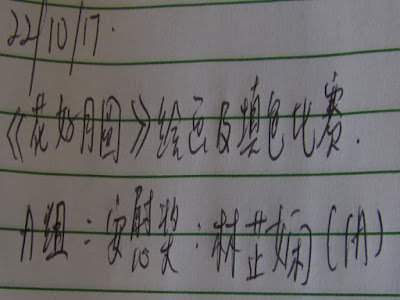 22/10/17.
《花好月圆》绘画及填色比赛.
A组：安慰奖：林芷娴(1A)